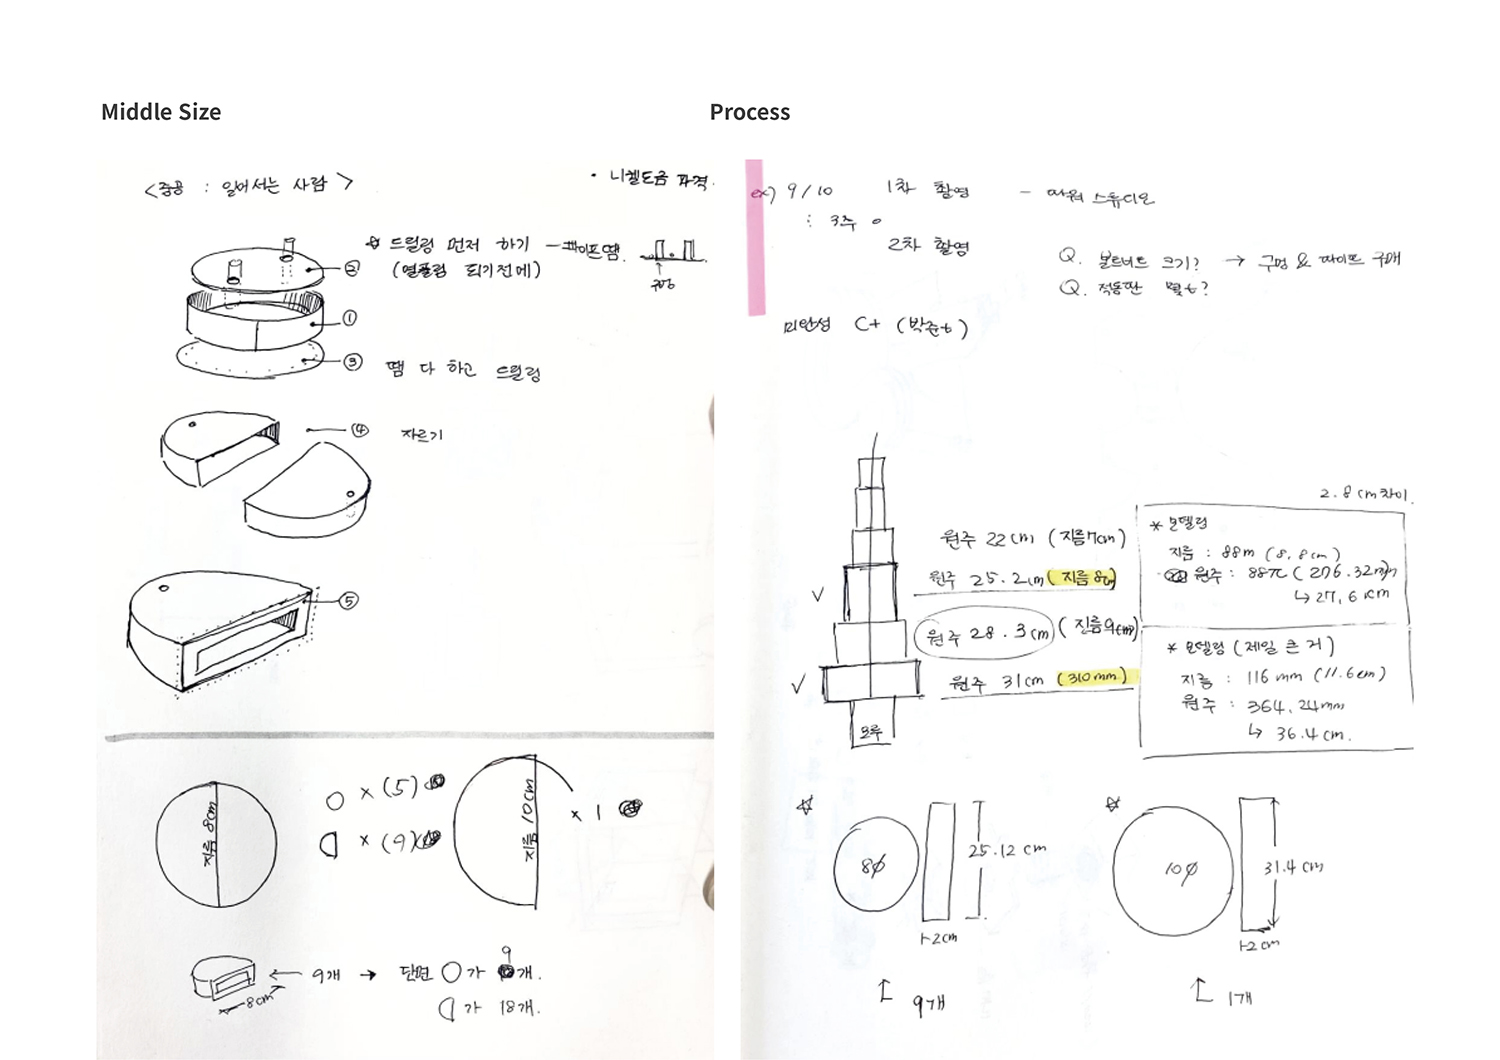 Middle Size
Process
<중공 : 일어서는 사람>
• 니켈도금 파격.
☆ 드릴링 먼저 하기 — 파이프땜.
(열풀림 되기 전에)
구멍
②
①
③ 땜 다 하고 드릴링
④ 자르기
⑤
지름 8cm
○ × (5)
× (9)
지름 10cm
× 1
8cm
← 9개 → 단면 ○가 9개.
가 18개.
ex) 9/10 1차 촬영 – 파워 스튜디오
: 3주
2차 촬영
Q. 볼트너트 크기? → 구멍 & 파이프 구매
Q. 적동판 몇 t?
미안성 C+ (박준)
2.8cm차이.
원주 22cm (지름7cm)
원주 25.2cm (지름 8cm)
원주 28.3cm (지름9cm)
원주 31cm (310mm)
모루
* 모델링
지름 : 88m (8.8cm)
원주 : 88π (276.32mm)
↳ 27.6cm
* 모델링 (제일 큰 거)
지름 : 116mm (11.6cm)
원주 : 364.24mm
↳ 36.4cm.
☆ 8∅
25.12 cm
2cm
↑ 9개
☆ 10∅
31.4 cm
2cm
↑ 1개